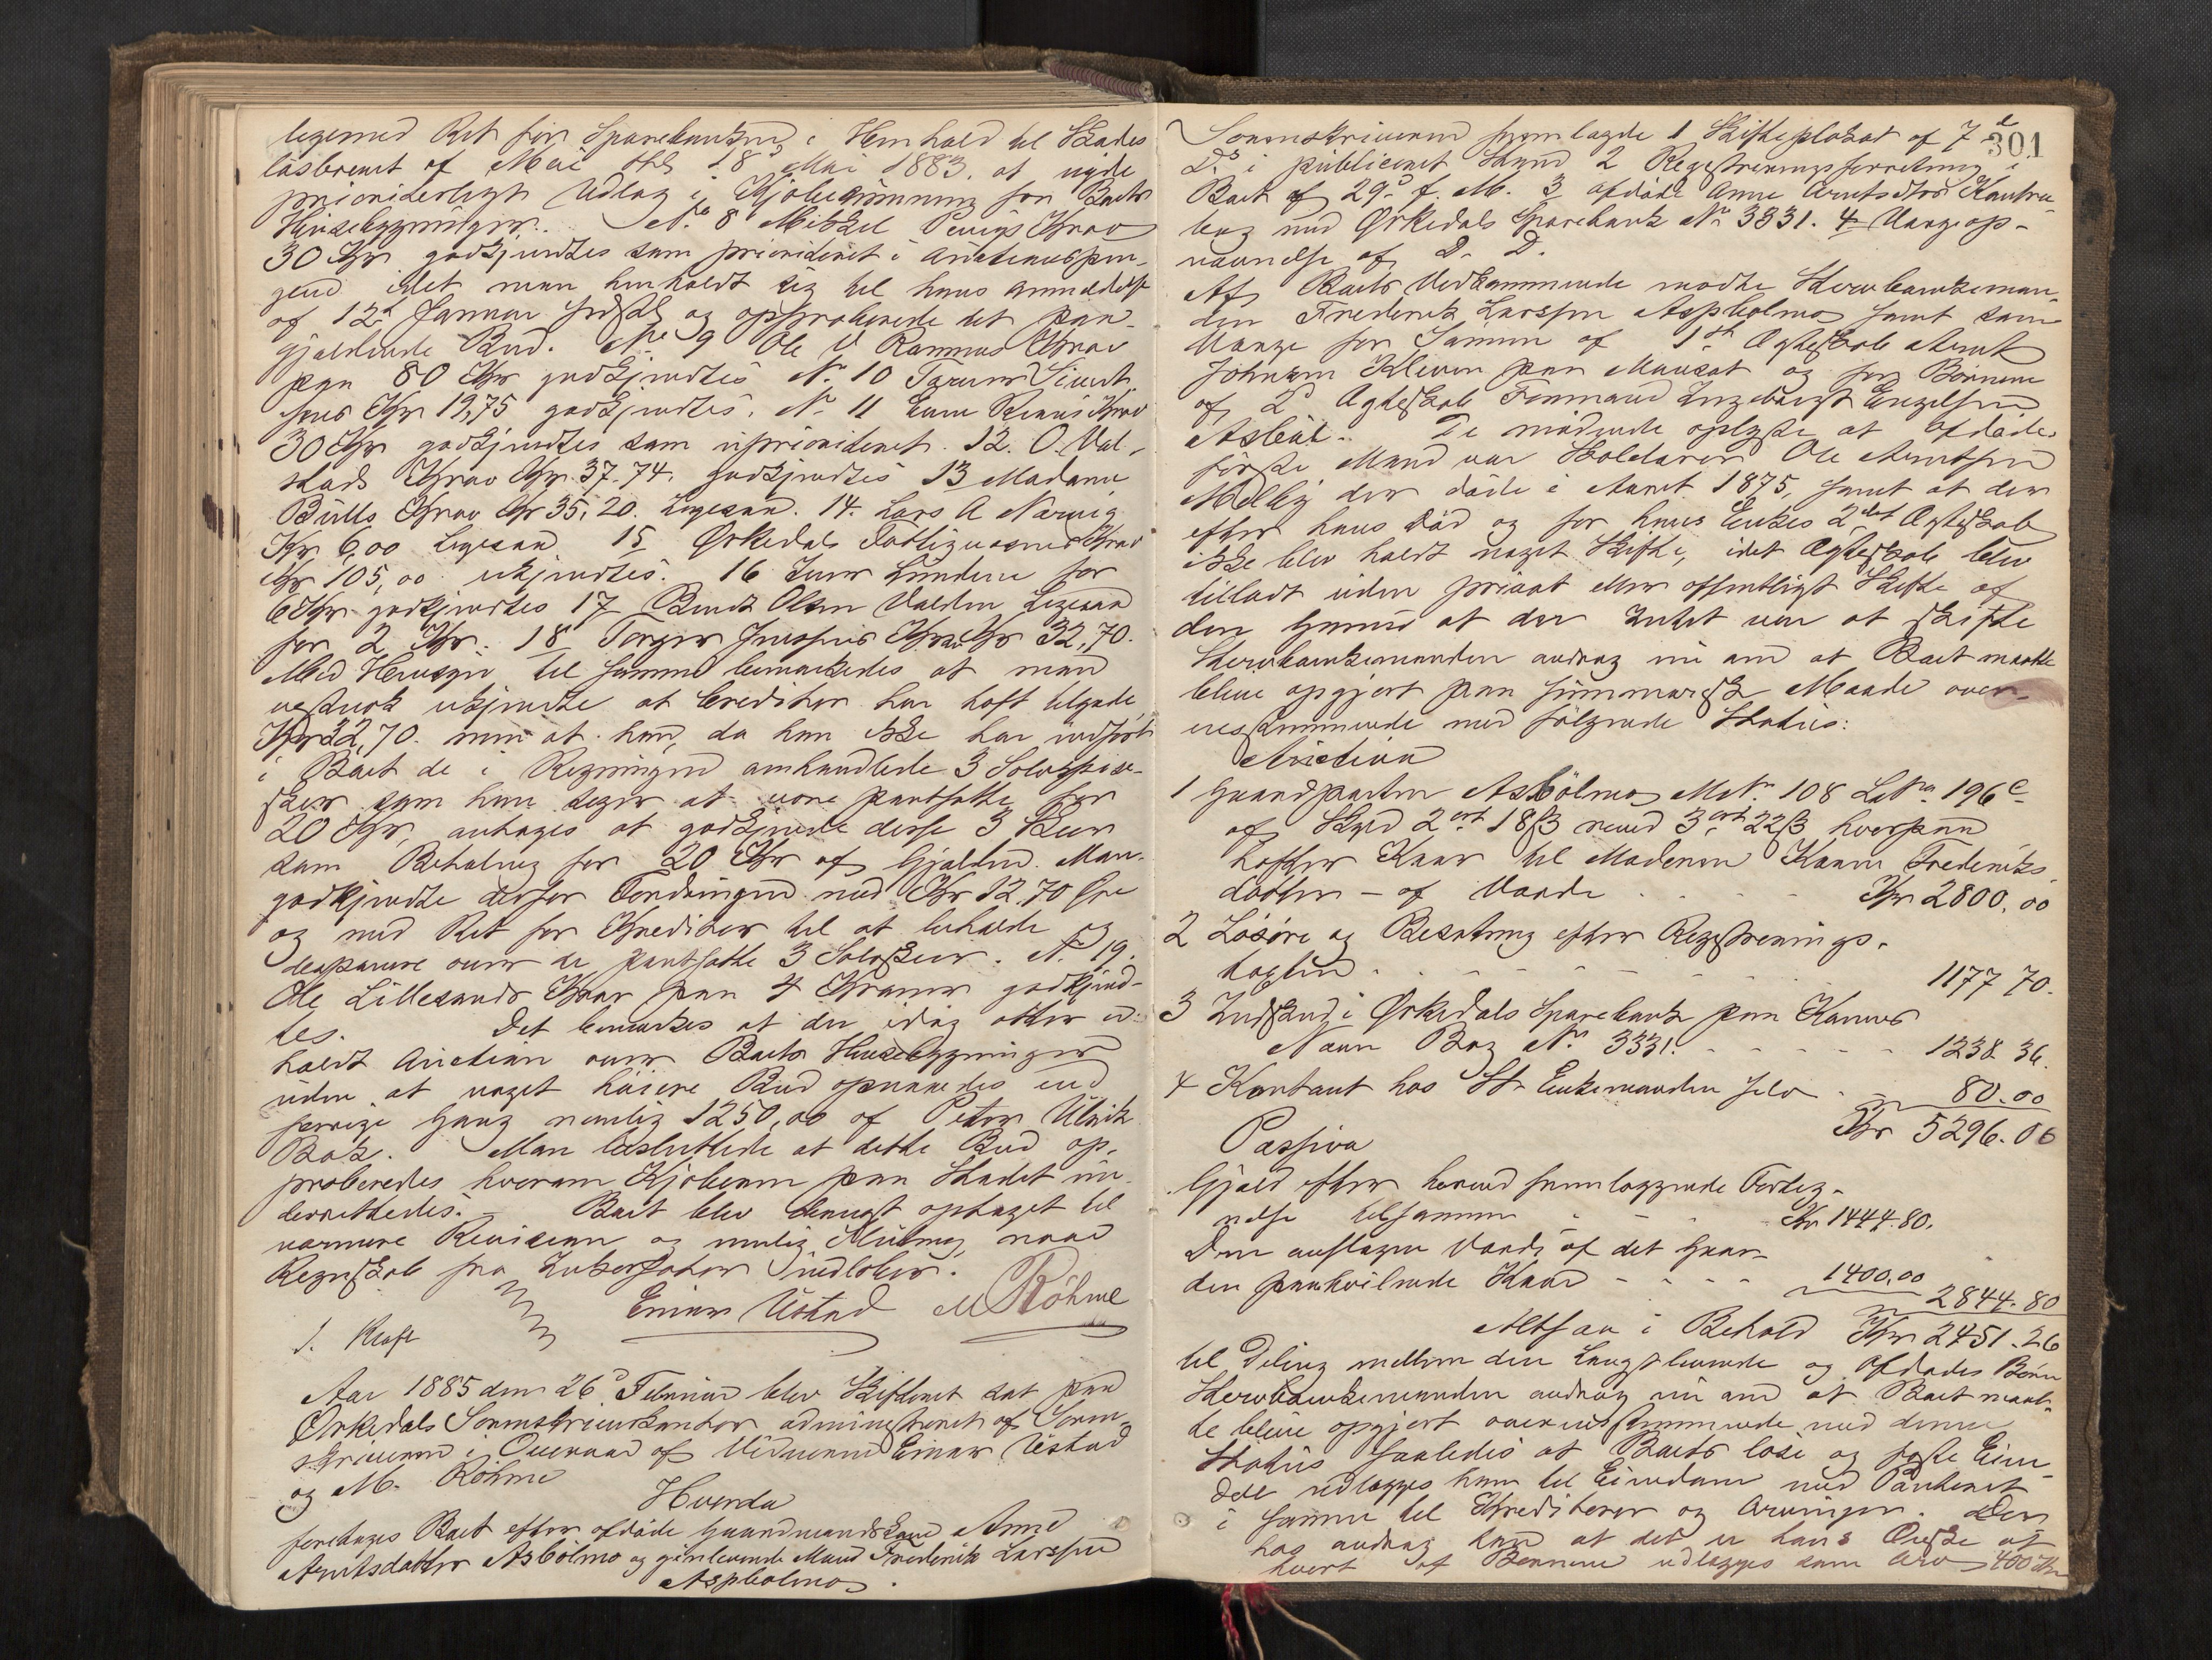 legemed Ret for Sparebanken i Henhold til Skades
løsbrevet af Mai 18 Mai 1883. at nyde
prioriteret Udlæg i Kjøbesummen for Boets
Husebygninger. No. 8 Mikkel Krav
30 Kr godkjendtes som prioriteret i Auctionspen-
gene idet man henholdt sig til hans Anmeldelse
af 12 Januar og approberede det paa-
gjældende Bud. No 9 Ole Krav
paa 80 Kr godkjendtes No. 10
Kr 19,75 godkjendtes. No. 11 Krav
30 Kr godkjendtes som uprioriteret. 12. O. Val-
stads Krav Kr. 37.74. godkjendtes 13 Madame
Bulls Krav Kr 35,20. Ligesaa. 14. Lars A Narvig
Kr. 6,00 Ligesaa 15 Ørkedals Fattigvæsens Krav
Kr 105,00 ukjendtes. 16 for
6 Kr. godkjendtes 17 Bendt Olsen Ligesaa
for 2 Kr. 18 Torger Krav Kr 32,70.
Med Hensyn til samme bemærkedes at man
vistnok ukjendte at Creditor har haft tilgode
Kr 32,70. men at han, da han ikke har indført
i Boet de i Regningen omhandlede 3 Sølvspise-
skeer som han siger at være pantsatte for
20 Kr, antages at godkjende disse 3 Skeer
som Betaling for 20 Kr af Gjælden. Man
godkjendte derfor Fordringen med Kr 12.70 Øre
og med Ret for Kreditor til at beholde og
disponere over de pantsatte 3 Sølvskeer. No. 19.
Ole Lillesands Krav paa 4 Kroner godkjend-
tes. Det bemærkes at der idag atter er
holdt Auction over Boets Husebygninger
uden at noget høiere Bud opnaaedes end
forrige Gang nemlig 1250,00 af Peter Ulrik
Bak. Man besluttede at dette Bud ap-
proberedes hvorom Kjøberen paa Stedet un-
derrettedes. Boet blev dernæst optaget til
nærmere Revision og mulig Slutning, naar
Regnskab fra Inkassator indløber.
Einar Ustad M Röhme

Aar 1885 den 26 Februar blev Skifteret sat paa
Ørkedals Sorenskriverkontor administreret af Soren-
skriveren i Overvær af Vidnerne Einar Ustad
og M. Röhme
Hvorda
foretages Boet efter afdøde Gaardmandskone Anne
Arntsdatter Asbølmo og gjenlevende Mand Frederik Larssen
Aspbolmo.
301
Sorenskriveren fremlagde 1 Skifteplakat af 7
Ds i publiceret Stand 2 Registreringsforretning i
Boet af 29 f. M. 3 afdøde Anne Arntsdtrs Kontra-
bog med Ørkedals Sparebank No 3331. 4 Værgeop-
nævnelse af D. D.
Af Boets Vedkommende mødte Stervbankeman-
den Frederik Larssen Aspbolmo samt som
Værge for Sønnen af 1ste Ægteskab Arnt
Johnsen Kleven paa og for Børnene
af 2d Ægteskab Formand Ingebrigt Engelsen
Asbøl. De mødende oplyste at Afdødes
første Mand var Skolelærer Ole Arntsen
Melby der døde i Aaret 1875, samt at der
efter hans Død og før hans Enkes 2det Ægteskab
ikke blev holdt noget Skifte, idet Ægteskab blev
tilladt uden privat eller offentligt Skifte af
den Grund at der Intet var at skifte
Stervbankemanden androg nu om at Boet maatte
blive opgjort paa summarisk Maade over-
ensstemmende med følgende Status:
Activa
1 Gaardparten Asbölmo Mat. No. 108 LbNo 196c
af Skyld 2 ort 18 ß med 3 ort 22 ß hvorpaa
hefter Kaar til Moderen Karen Frederiks
datter - af Værdi . . . Kr 2800,00
2 Løsøre og Besætning efter Registrerings-
taxten . . . 1177 70.
3 Indskud i Ørkedals Sparebank paa Konens
Navn Bog No. 3331. . . . 1238. 36.
4 Kontant hos Enkemanden selv . . 80.00
Kr 5296.06
Passiva
Gjæld efter herved fremlæggende Forteg-
nelse tilsammen . . . Kr 1444.80.
Den anslagne Værdi af det Gaar-
den paahvilende Kaar . . . 1400,00
2844.80
Altsaa i Behold Kr 2451.26
til Deling mellem den Længstlevende og Afdødes Børn
Stervbankemanden androg nu om at Boet maat-
te blive opgjort overensstemmende med denne
Status saaledes at Boets løse og faste Eien-
dele udlægges ham til Eiendom med Panteret
i samme til Kreditorer og Arvinger. Der-
hos androg han at det er hans Ønske at
hvert af Børnene udlægges som Arv 400 Kr